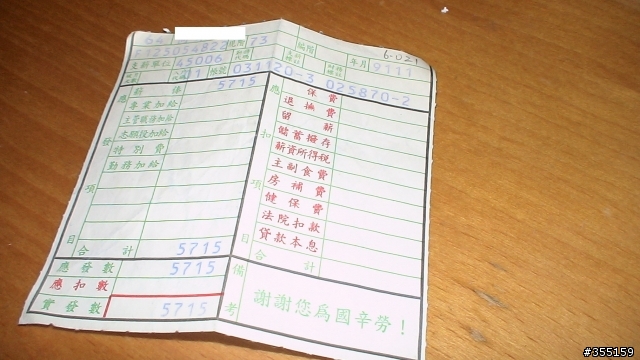 73 編階 6-021
支薪單位 45006 年月 9111
代碼 11 帳號 031120-3 025870-2
應發項目
薪俸 5715
專業加給
主管職務加給
志願役加給
特別費
勤務加給
合計 5715
應發數 5715
應扣數
實發數 5715
應扣項目
保費
退撫費
留薪
儲蓄撥存
薪資所得稅
主副食費
房補費
健保費
法院扣款
貸款本息
合計
備考
謝謝您為國辛勞！
#355159